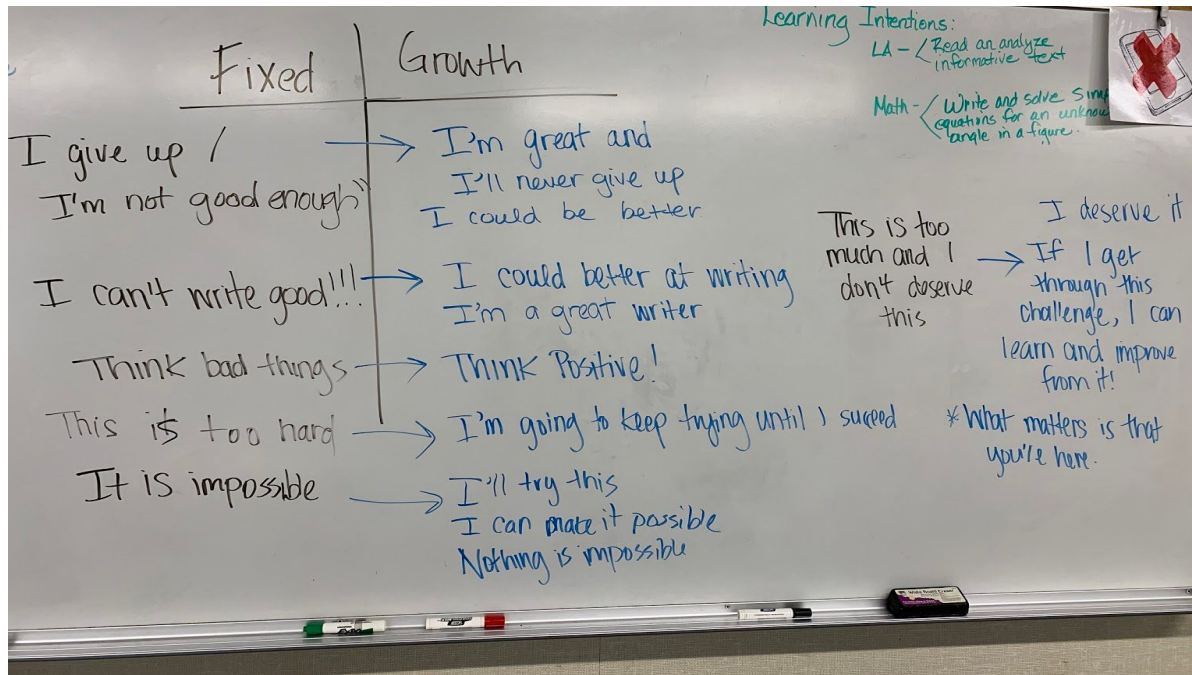 Fixed
Growth
I give up /
I'm not good enough"
I'm great and
I'll never give up
I could be better
I can't write good!!!
I could better at writing
I'm a great writer
Think bad things
Think Positive!
This is too hard
I'm going to keep trying until I succeed
It is impossible
I'll try this
I can make it possible
Nothing is impossible
Learning Intentions:
LA - Read an analyze
informative text
Math - Write and solve
equations for an
angle in a figure.
This is too
much and I
don't deserve
this
I deserve it
If I get
through this
challenge, I can
learn and improve
from it!
* What matters is that
you're here.